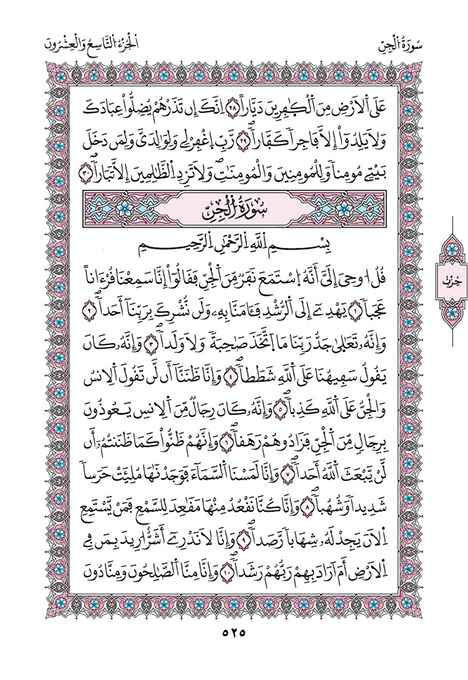 سُورَةُ الْجِنِّ
الْجُزْءُ التَّاسِعُ وَالْعِشْرُونَ
عَلَى اَلَارْضِ مِنَ اَلْكٰفِرِينَ دَيَّاراًۖ ٢٨ اِنَّكَ إِن تَذَرْهُمْ يُضِلُّواْ عِبَادَكَ
وَلَا يَلِدُوٓاْ إِلَّا فَاجِراً كَفَّاراًۖ ٢٩ رَّبِّ اِغْفِرْ لِے وَلِوَٰلِدَىَّ وَلِمَن دَخَلَ
بَيْتِے مُومِناً وَلِلْمُومِنِينَ وَالْمُومِنَٰتِۖ وَلَا تَزِدِ اِلظَّٰلِمِينَ إِلَّا تَبَاراًۖ ٣٠
سُورَةُ الْجِنِّ
بِسْمِ اِللَّهِ اِلرَّحْمَٰنِ اِلرَّحِيمِ
قُلُ ا۟وحِىَ إِلَىَّ أَنَّهُ اُ۪سْتَمَعَ نَفَرٌ مِّنَ اَلْجِنِّ فَقَالُوٓاْ إِنَّا سَمِعْنَا قُرْءَاناً
عَجَباً ١ يَهْدِےٓ إِلَى اَلرُّشْدِ فَـَٔامَنَّا بِهِۦ وَلَن نُّشْرِكَ بِرَبِّنَآ أَحَداًۖ ٢
وَإِنَّهُۥ تَعَٰلَىٰ جَدُّ رَبِّنَا مَا اَ۪تَّخَذَ صَٰحِبَةً وَلَا وَلَداًۖ ٣ وَإِنَّهُۥ كَانَ
يَقُولُ سَفِيهُنَا عَلَى اَللَّهِ شَطَطاًۖ ٤ وَإِنَّا ظَنَنَّآ أَن لَّن تَقُولَ اَلِانسُ
وَالْجِنُّ عَلَى اَللَّهِ كَذِباًۖ ٥ وَإِنَّهُۥ كَانَ رِجَالٌ مِّنَ اَلِانسِ يَعُوذُونَ
بِرِجَالٍ مِّنَ اَلْجِنِّ فَزَادُوهُمْ رَهَقاًۖ ٦ وَإِنَّهُمْ ظَنُّواْ كَمَا ظَنَنتُمُۥٓ أَن
لَّنْ يَّبْعَثَ اَللَّهُ أَحَداًۖ ٧ وَإِنَّا لَمَسْنَا اَلسَّمَآءَ فَوَجَدْنَٰهَا مُلِئَتْ حَرَساً
شَدِيداً وَشُهُباًۖ ٨ وَإِنَّا كُنَّا نَقْعُدُ مِنْهَا مَقَٰعِدَ لِلسَّمْعِ فَمَنْ يَّسْتَمِعِ
اِلَانَ يَجِدْ لَهُۥ شِهَاباً رَّصَداًۖ ٩ وَإِنَّا لَا نَدْرِےٓ أَشَرٌّ ا۟رِيدَ بِمَن فِے
اِلَارْضِ أَمَ اَرَادَ بِهِمْ رَبُّهُمْ رَشَداًۖ ١٠ وَإِنَّا مِنَّا اَلصَّٰلِحُونَ وَمِنَّا دُونَ
حِزْبٌ
٥٢٥